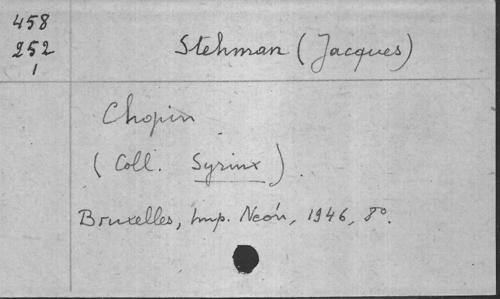 458
252
1
Stehman (Jacques)
Chopin
(Coll. Syrinx).
Bruxelles, Imp. Neón, 1946, 8º.